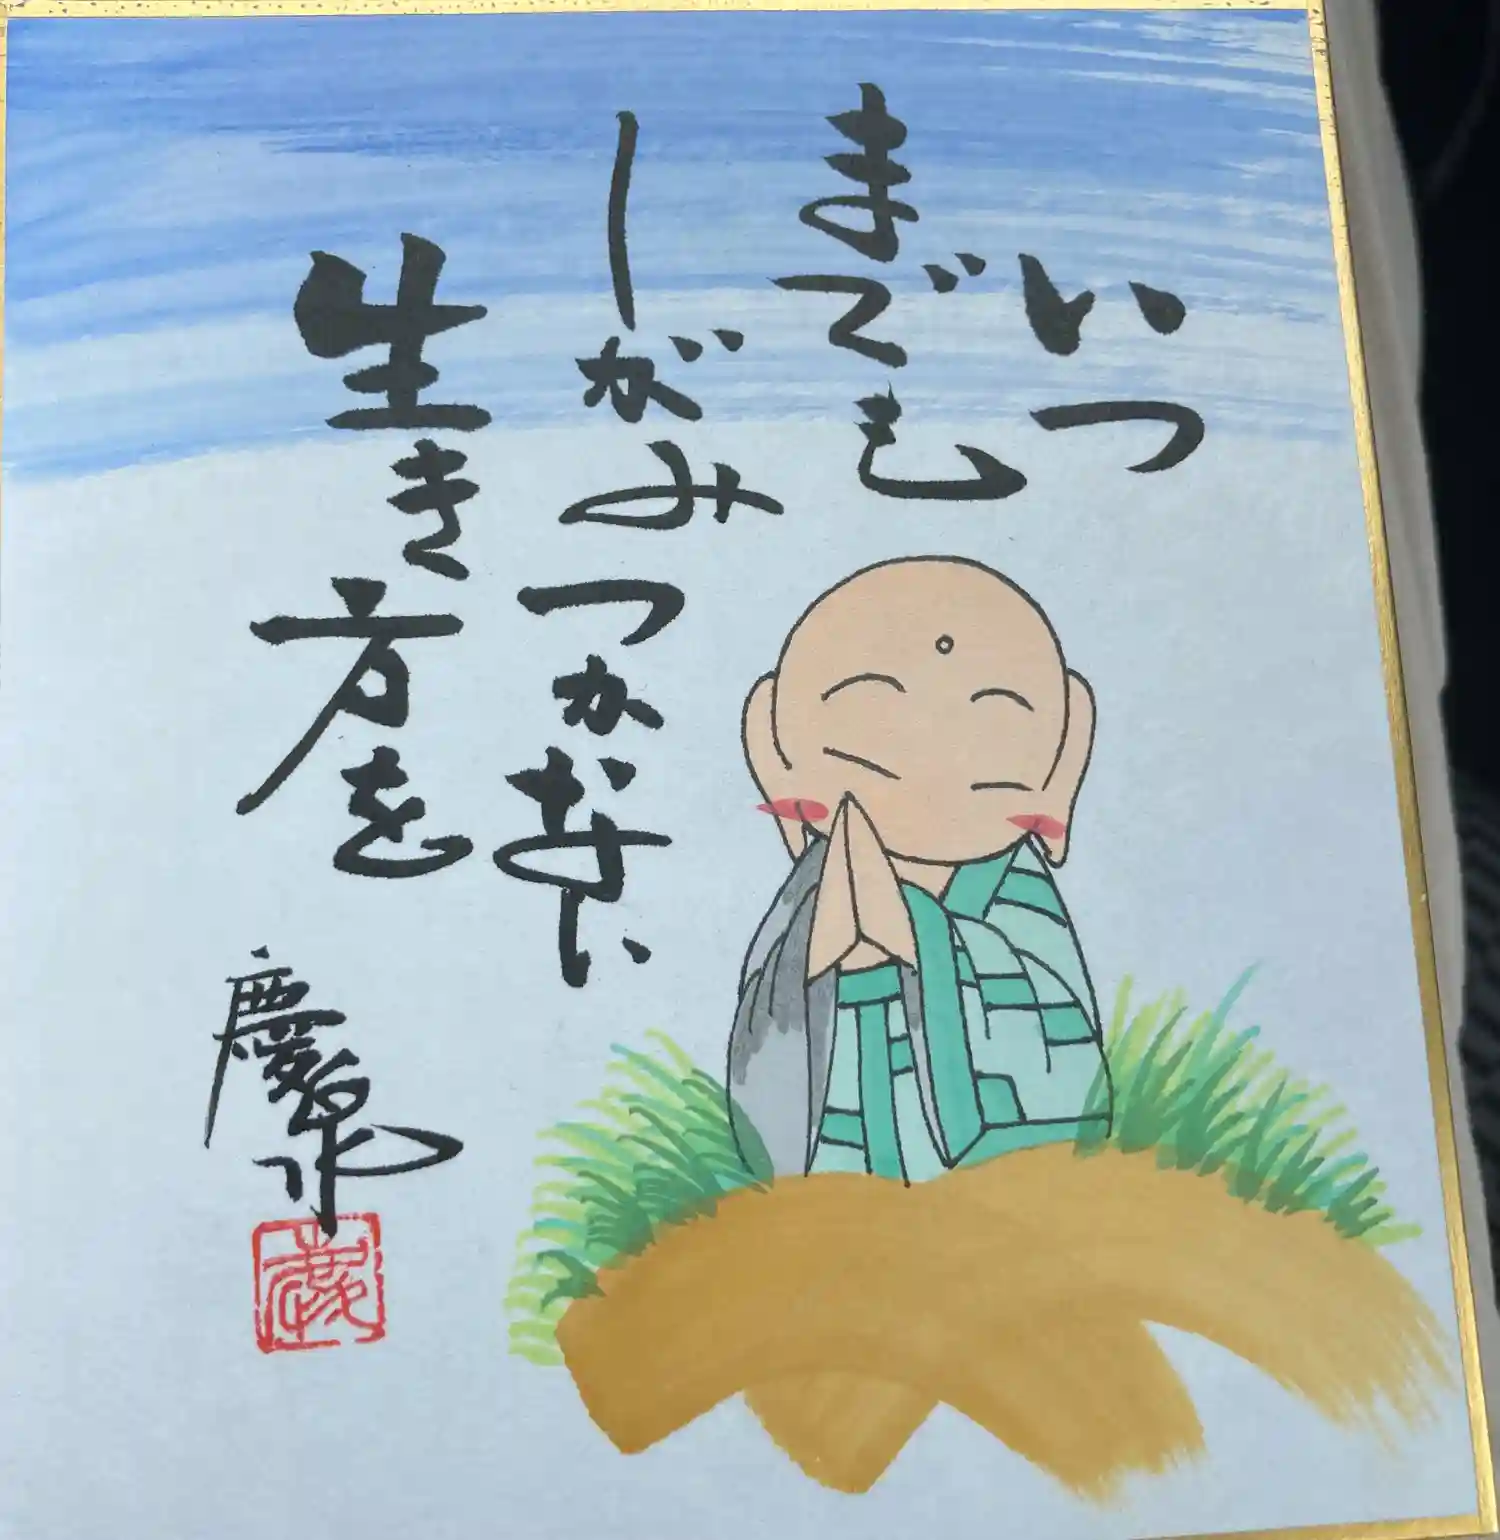 いつ
までも
しがみつかない
生き方を
慶泉